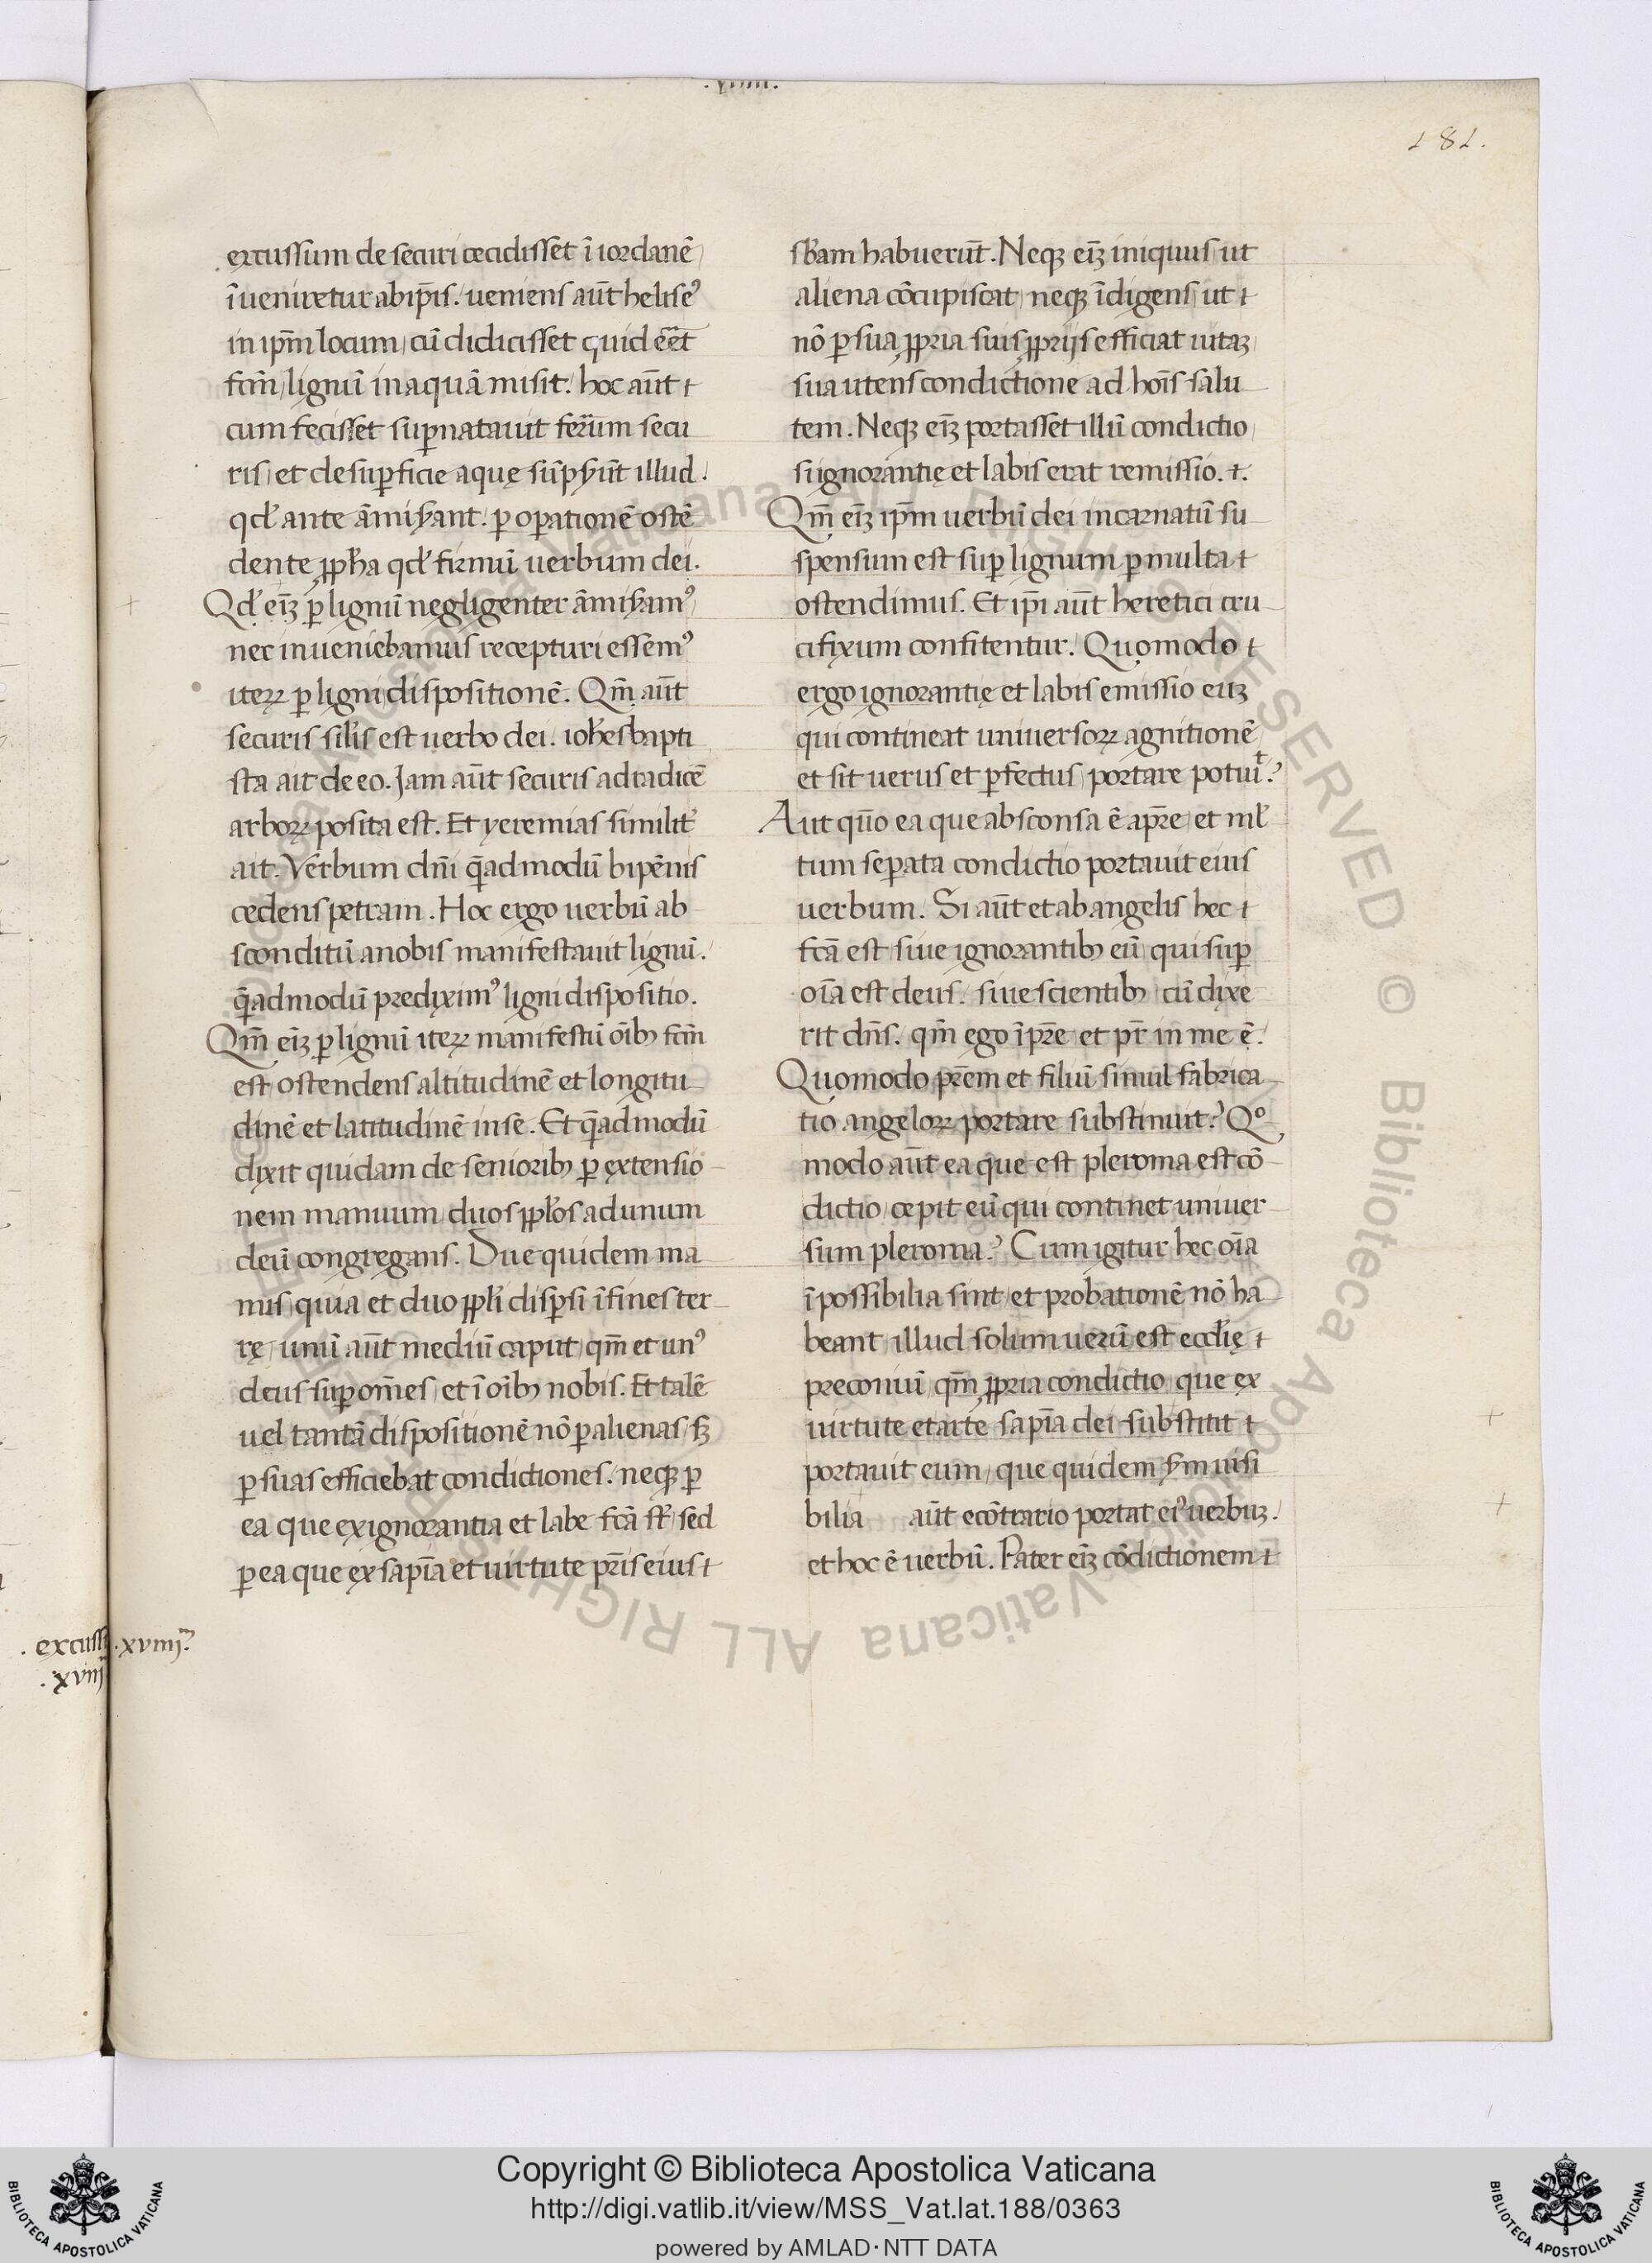 .xviiii.
181.
excussum de securi cecidisset ī iordanē
īueniretur ab ip̄is. ueniens aūt helise᾽
in ip̄m locum, cū didicisset quid eēt
fcm̄, lignū in aquā misit. hoc aūt ɫ
cum fecisset sup̱natauit ferrum secu
ris, et de sup̱ficie aquę sūpserūt illud.
qd̕ ante āmiserant. ꝑ oꝑationē ostē
dente ꝓph̄a qd̕ firmū uerbum dei.
Qd̕ eīz ꝑ lignū negligenter āmiseram᾽
nec inueniebamus recepturi essem᾽
iteꝝ ꝑ ligni dispositionē. Qm̄ aūt
securis sil̕is est uerbo dei. ioh̕es bapti
sta ait de eo. Jam aūt securis ad radicē
arboꝝ posita est. Et yeremias similit̕
ait. Verbum dn̄i q̄admodū bipēnis
cedens petram. Hoc ergo uerbū ab
sconditū a nobis manifestauit lignū.
q̄admodū prediximꝰ ligni dispositio.
Qm̄ eīz ꝑ lignū iteꝝ manifestū oīb; fcm̄
est ostendens altitudinē et longitu
dinē et latitudinē in se. Et q̄admodū
dixit quidam de seniorib; ꝑ extensio
nem manuum duos ppl̕os ad unum
deū congregans. Due quidem ma
nus, quia et duo ppl̕i disꝑsi ī fines ter
rę, unū aūt mediū caput, qm̄ et unꝰ
deus suꝑ om̄es, et ī oīb; nobis. Et talē
uel tantā dispositionē nō ꝑ alienas, sꝫ
ꝑ suas efficiebat condictiones. neqꝫ ꝑ
ea que ex ignorantia et labe fcā st̄, sed
ꝑ ea que ex sapīa et uirtute pr̄is eius ɫ
sb̄am habuerūt. Neqꝫ eīz iniquus, ut
aliena cōcupiscat, neqꝫ īdigens, ut ɫ
nō ꝑ sua ꝓpria suis ꝓpriis efficiat uitaꝫ
sua utens condictione ad hoīs salu
tem. Neqꝫ eīz portasset illū condictio,
si ignorantię et labis erat remissio. ɫ.
Qm̄ eīz ip̄m uerbū dei incarnatū su
spensum est suꝑ lignum ꝑ multa ɫ
ostendimus. Et ip̄i aūt heretici cru
cifixum confitentur. Quomodo ɫ
ergo ignorantię et labis emissio euꝫ
qui contineat uniuersoꝝ agnitionē
et sit uerus et ꝑfectus, portare potuit?
Aut quō ea que absconsa ē a pr̄e, et ml̕
tum seꝑata condictio portauit eius
uerbum. Si aūt et ab angelis hec ɫ
fcā est siue ignorantib; eū qui suꝑ
oīa est deus. siue scientib; cū dixe
rit dn̄s. qm̄ ego ī pr̄e et pr̄ in me ē.
Quomodo pr̄em et filiū simul fabrica
tio angeloꝝ portare substinuit? Qº
modo aūt ea que est pleroma est cō
dictio, cepit eū qui continet uniuer
sum pleroma? Cum igitur hec oīa
īpossibilia sint, et probationē nō ha
beant, illud solum uerū est eccl̕ię ɫ
preconiū, qm̄ ꝓpria condictio, que ex
uirtute et arte sapīa dei substitit ɫ
portauit eum, que quidem sm̄ uisi
bilia aūt ecōtrario portat eiꝰ uerbuꝫ.
et hoc ē uerbū. Pater eīz cōdictionem ɫ
Copyright © Biblioteca Apostolica Vaticana
http://digi.vatlib.it/view/MSS_Vat.lat.188/0363
powered by AMLAD·NTT DATA
BIBLIOTECA APOSTOLICA VATICANA
BIBLIOTECA APOSTOLICA VATICANA